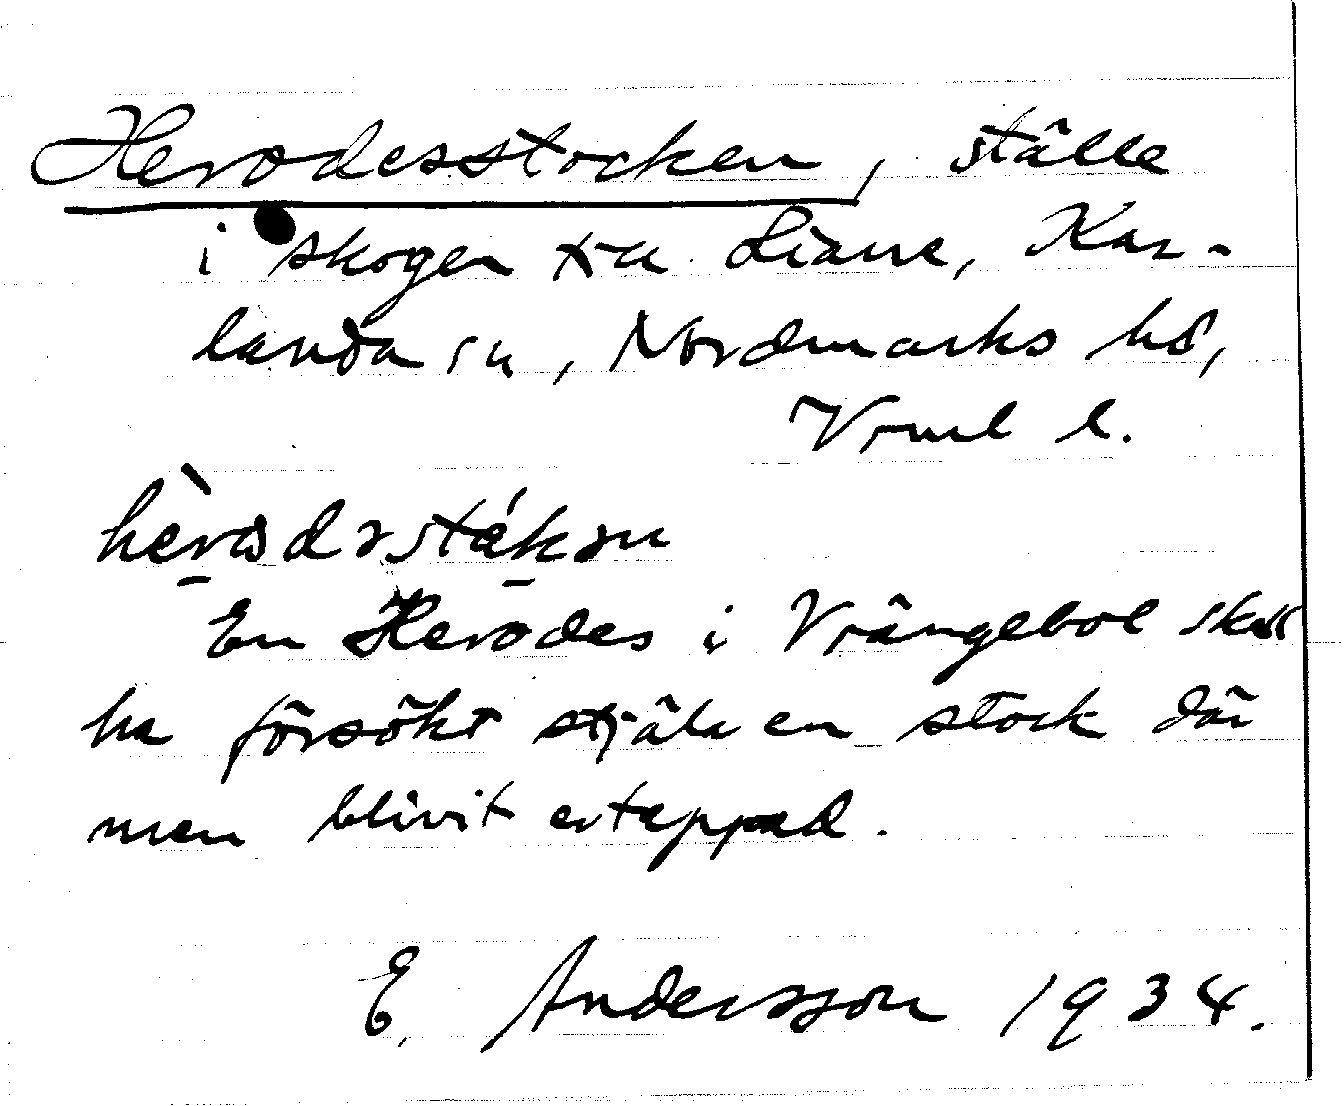 Herodesstocken, ställe
i skogen t. Liane, Kar-
landa sn, Nordmarks hd,
Vrml l.
En Herodes i Vrångebol skall
ha försökt stjäla en stock där
men blivit ertappad.
E. Andersson 1934.